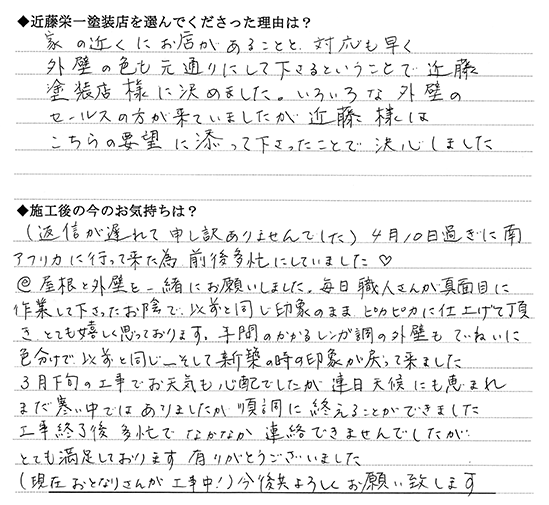 ◆近藤栄一塗装店を選んでくださった理由は？
家の近くにお店があることと、対応も早く
外壁の色も元通りにして下さるということで近藤
塗装店様に決めました。いろいろな外壁の
セールスの方が来ていましたが近藤様は
こちらの要望に添って下さったことで決心しました
◆施工後の今のお気持ちは？
(返信が遅れて申し訳ありませんでした) 4月10日過ぎに南
アフリカに行って来た為前後多忙にしていました♡
@屋根と外壁と一緒にお願いしました。毎日職人さんが真面目に
作業して下さったお陰で、以前と同じ印象のままピカピカに仕上げて頂
き、とても嬉しく思っております。手間のかかるレンガ調の外壁もていねいに
色分けで以前と同じ_そして新築の時の印象が戻って来ました
3月下旬の工事でお天気も心配でしたが連日天候にも恵まれ
まだ寒い中ではありましたが順調に終えることができました
工事終了後多忙でなかなか連絡できませんでしたが
とても満足しております 有りがとうございました
(現在おとなりさんが工事中!) 今後共よろしくお願い致します